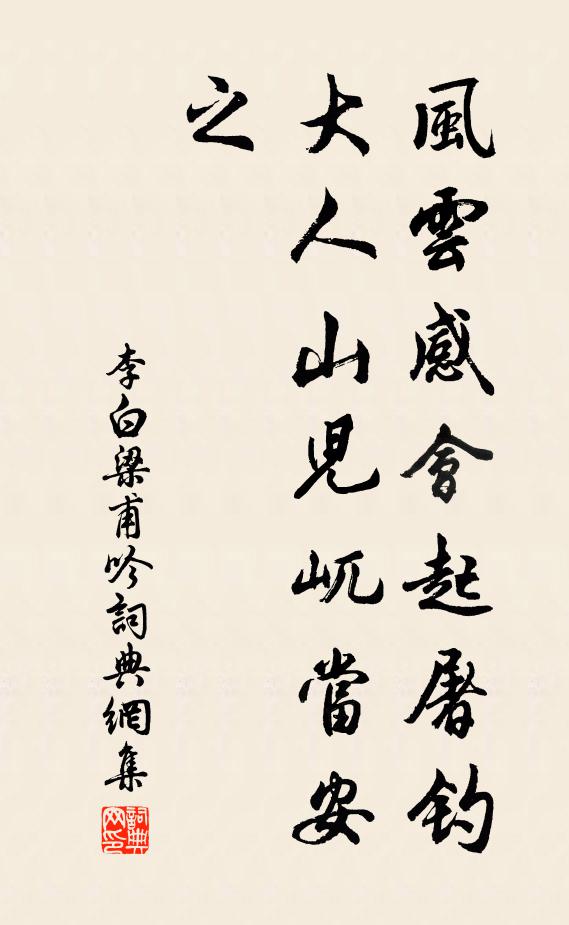 風雲感會起屠釣
大人山兒屼當安
之
李白梁甫吟詞典網集
詞典網印